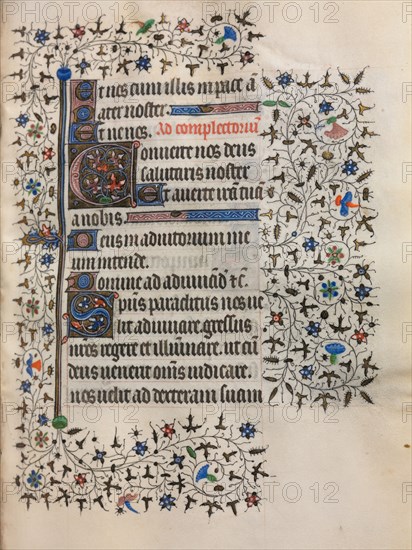 Et nos cum illis in pace a
ater noster.
Et ne nos. Ad complectoriu
Converte nos deus
salutaris noster
Et averte iram tua
a nobis.
Deus in adiutorium me
um intende.
Domine ad adiuvand &c.
Spūs paraclitus nos ve
lit adiuvare. gressus
nros regere et illuminare. ut cu
deus venerit omīs iudicare.
nos velit ad dexteram suam
PHOTO 12